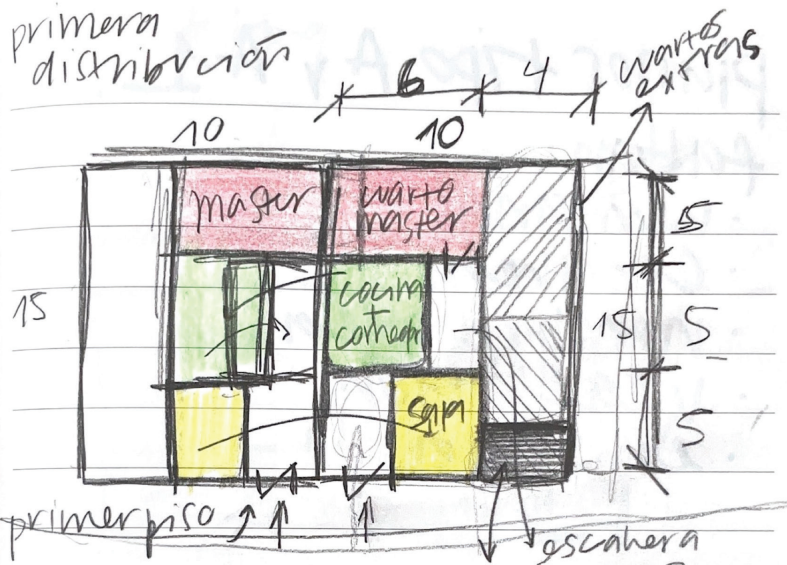 primera
distribución
6
4
cuartos
extras
10
10
master
cuarto
master
5
15
cocina
+
comedor
15
5
sala
5
primer piso
escalera